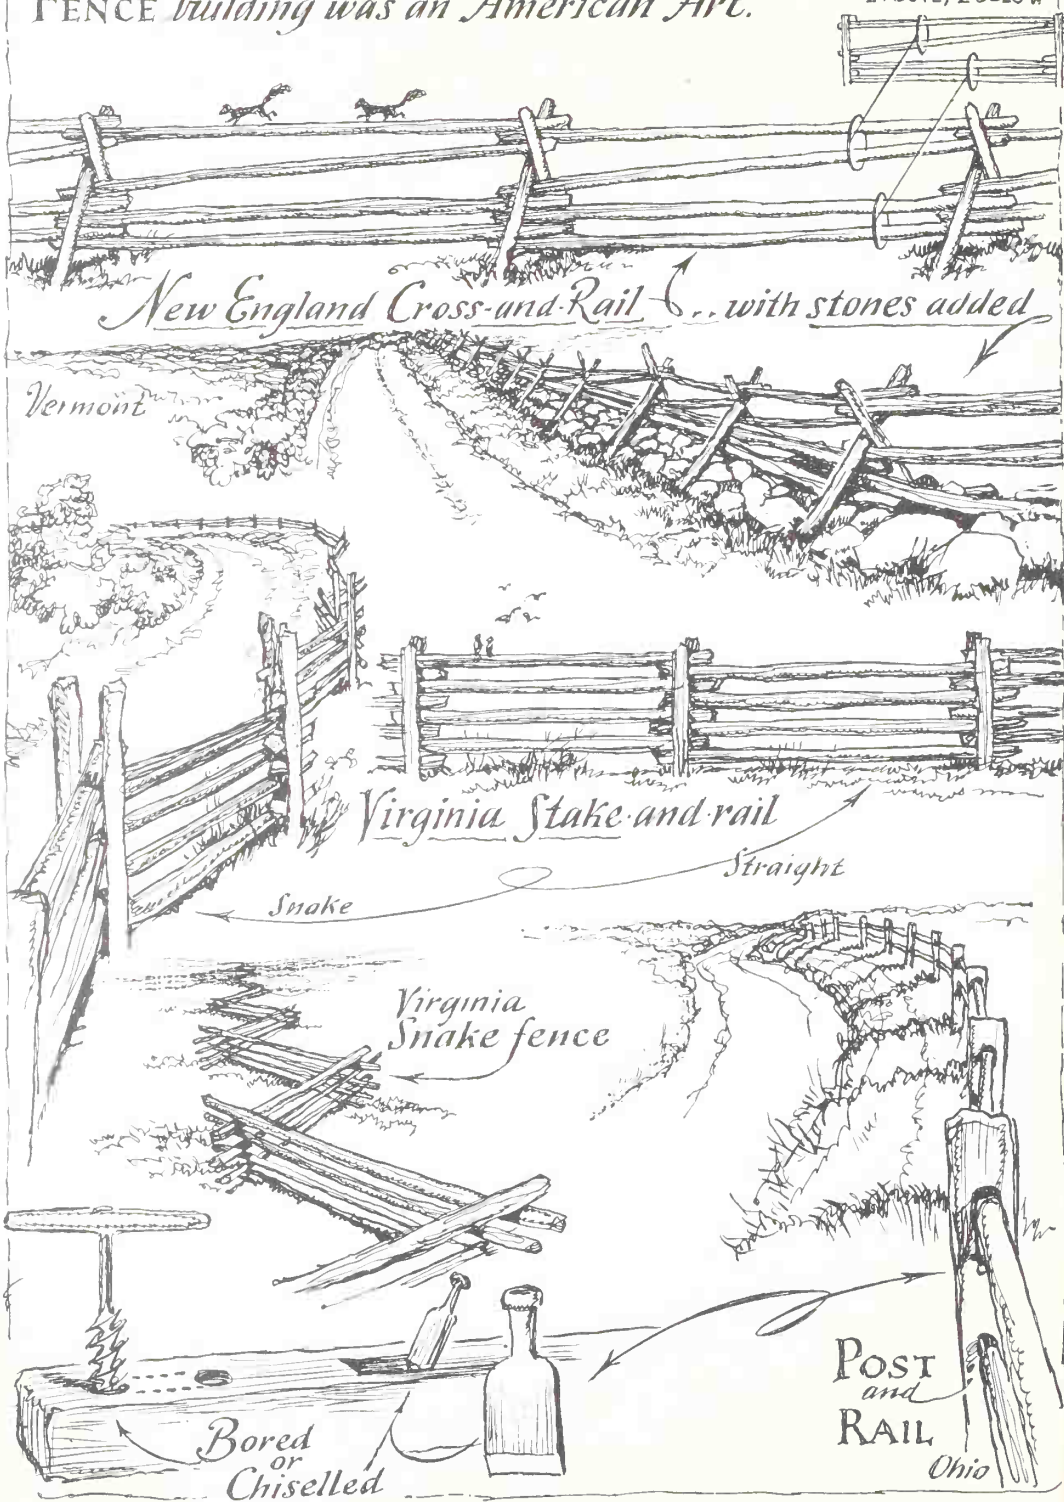 FENCE building was an American Art.
New England Cross-and-Rail . . with stones added
Vermont
Virginia Stake-and-rail
Straight
Snake
Virginia
Snake fence
POST
and
RAIL
Ohio
Bored
or
Chiselled